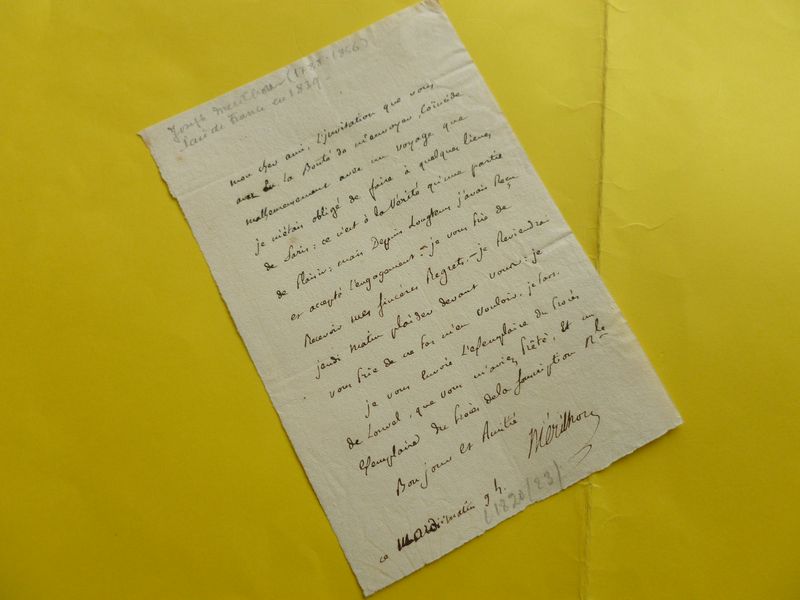 Joseph Merilhou (1788-1856)
Pair de France en 1839 -
mon cher ami, L'invitation que vous
avez eu La Bonté de m'envoyer, Coïncide
malheureusement avec un voyage que
je m'étais obligé de faire à quelques lieues
de Paris : ce n'est à la Vérité qu'une partie
de Plaisir : mais Depuis Longtems j'avais Reçu
et accepté L'engagement - je vous prie de
Recevoir mes sincères Regrets. - je Reviendrai
jeudi matin plaider devant vous : je
vous prie de ne pas m'en vouloir.
je vous envoie L'exemplaire du Procès
de Louvel, que vous m'aviez Prêté, et un
exemplaire du Procès de la Souscription Nle
Bonjour et Amitié
Mérilhou
ce mardi matin 9 h.
(1820/23)